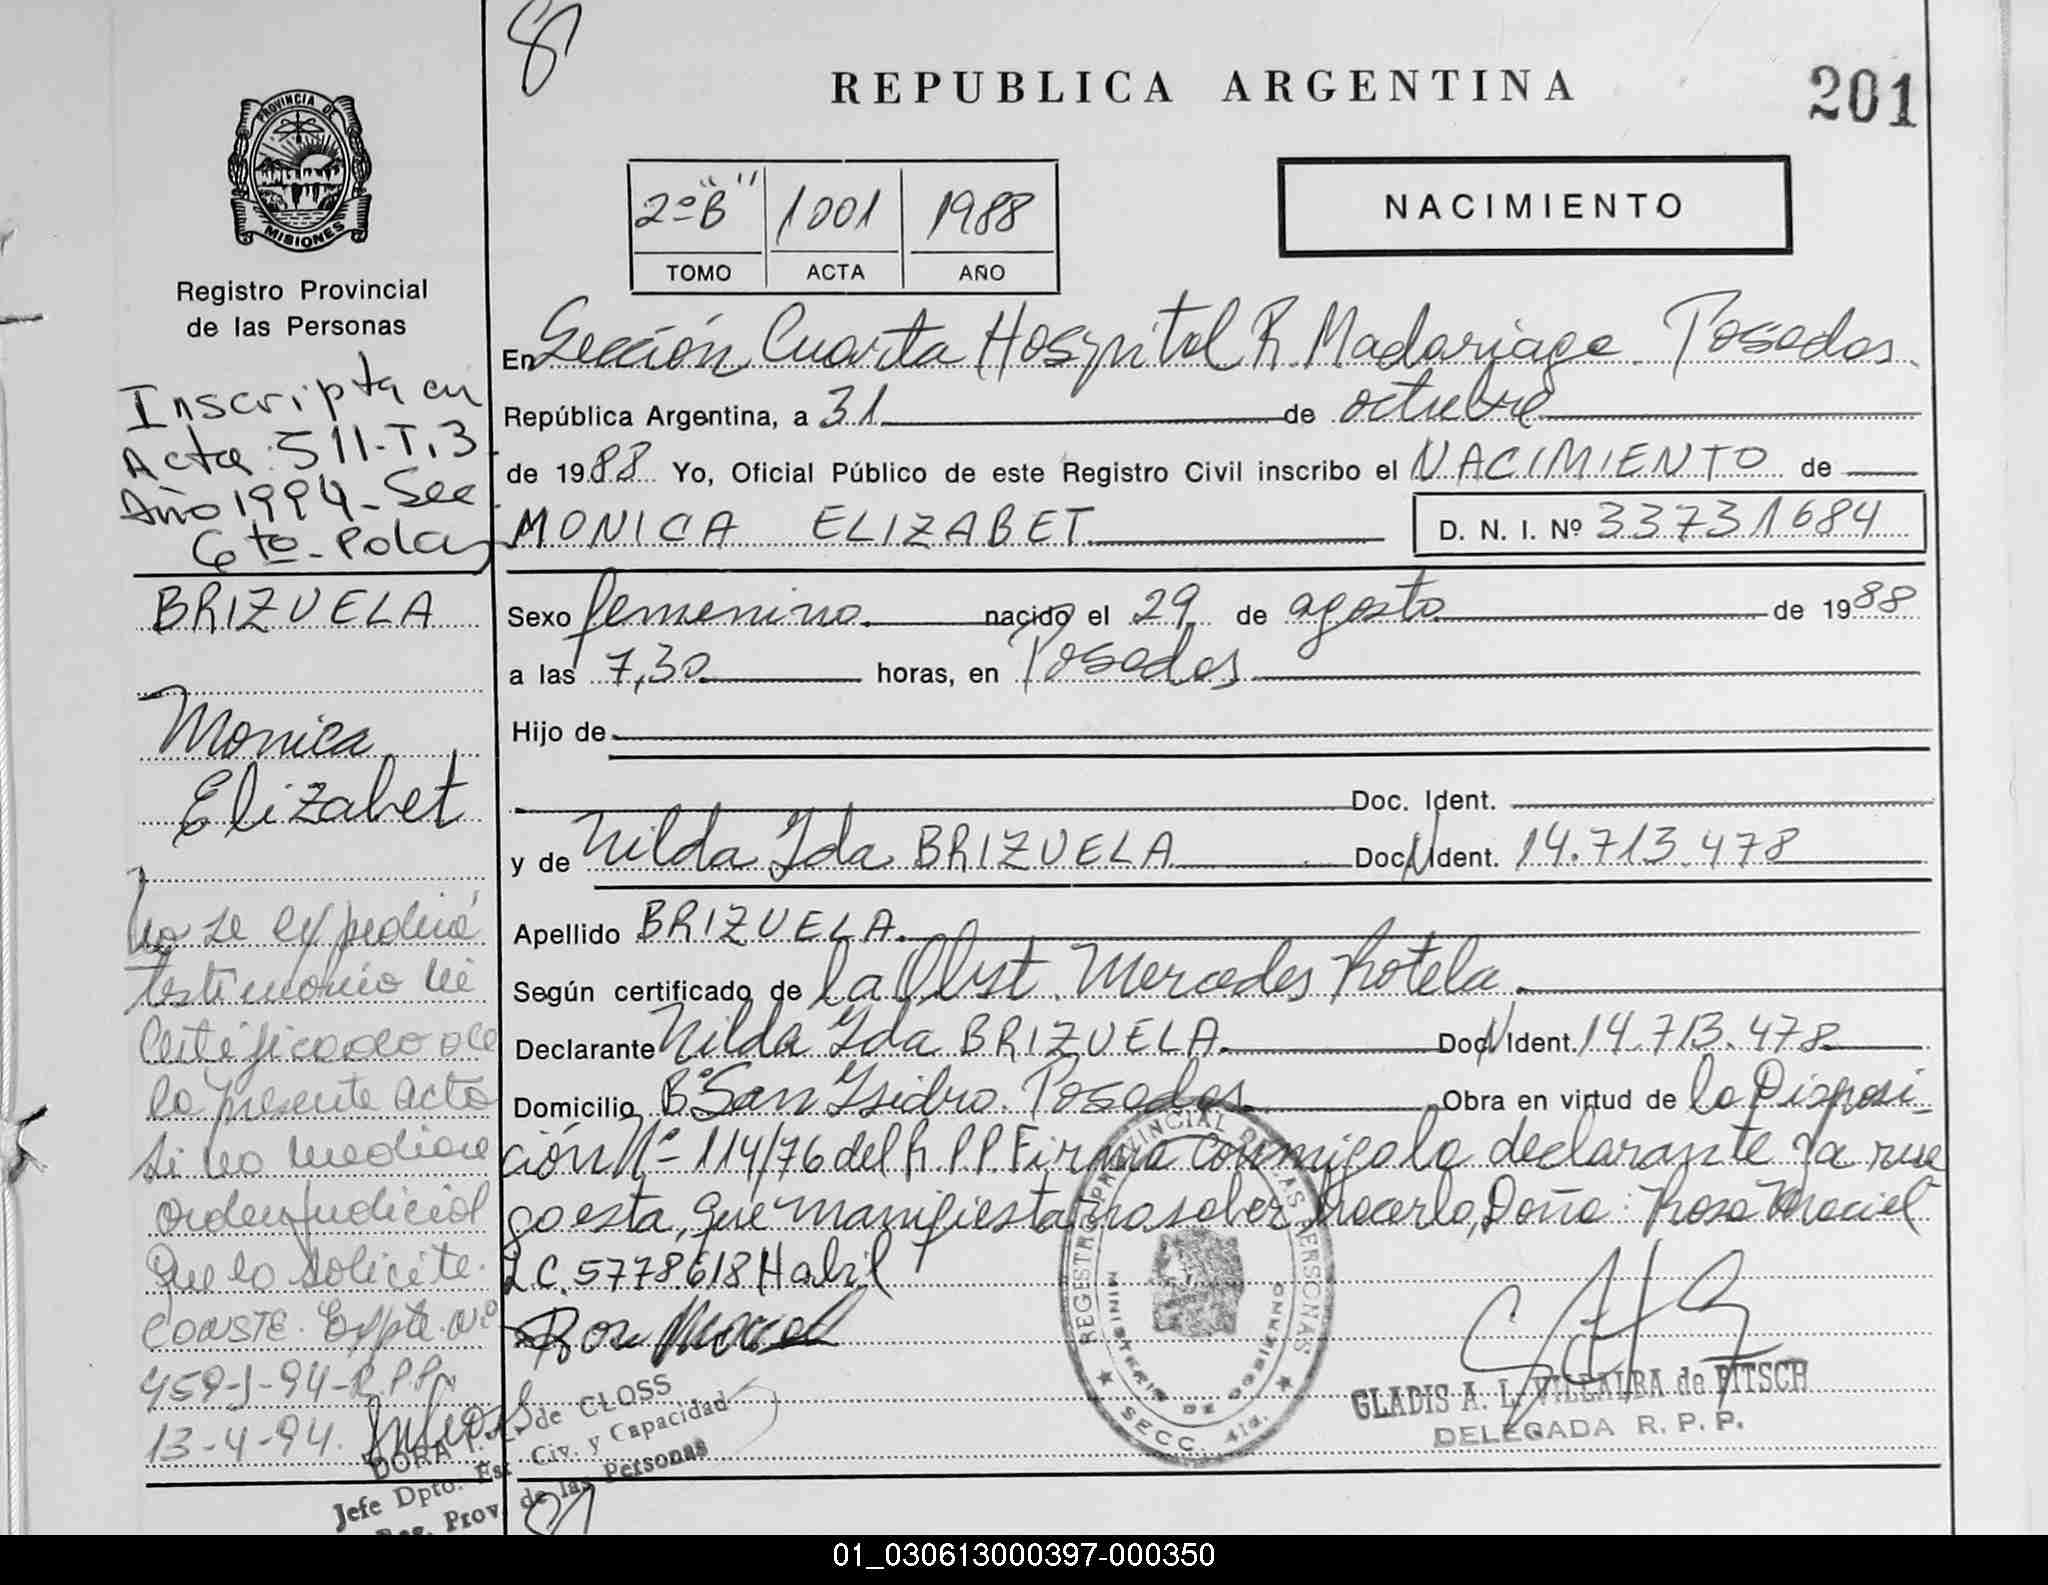 8
REPUBLICA ARGENTINA
201
PROVINCIA DE
MISIONES
Registro Provincial
de las Personas
2º "B" 1001 1988
TOMO ACTA AÑO
NACIMIENTO
En Sección Cuarta Hospital R. Madariaga. Posadas.
República Argentina, a 31 de octubre
de 1988 Yo, Oficial Público de este Registro Civil inscribo el NACIMIENTO de
MONICA ELIZABET D. N. I. Nº 33731684
Sexo femenino. nacido el 29 de agosto de 1988
a las 7,30 horas, en Posadas
Hijo de
Doc. Ident.
y de Nilda Ida BRIZUELA Doc. N Ident. 14.713.478
Apellido BRIZUELA.
Según certificado de la Obst. Mercedes Rotela.
Declarante Nilda Ida BRIZUELA. Doc. N Ident. 14.713.478
Domicilio Bº San Isidro. Posadas Obra en virtud de la Disposi-
ción Nº 114/76 del R.P.P. Firma conmigo la declarante y a rue
go esta, que manifiesta no saber hacerlo, Doña: Rosa Maciel
L.C. 5778618 Habil
Rosa Maciel
Inscripta en
Acta: 511-T.3
Año 1994-Sec
6to-Pdas
BRIZUELA
Monica
Elizabet
No se expedirá
testimonio ni
certificado de
la presente acta
si no mediare
orden judicial
que lo solicite.
CONSTE. Expte. Nº
459-J-94-R.P.P.
13-4-94.
DORA de CLOSS
Jefe Dpto. Est. Civ. y Capacidad
Reg. Prov. de las Personas
REGISTRO PROVINCIAL DE LAS PERSONAS
MINISTERIO DE GOBIERNO
SECC. 4ta.
GLADIS A. L. VILLALBA de PITSCH
DELEGADA R. P. P.
01_030613000397-000350